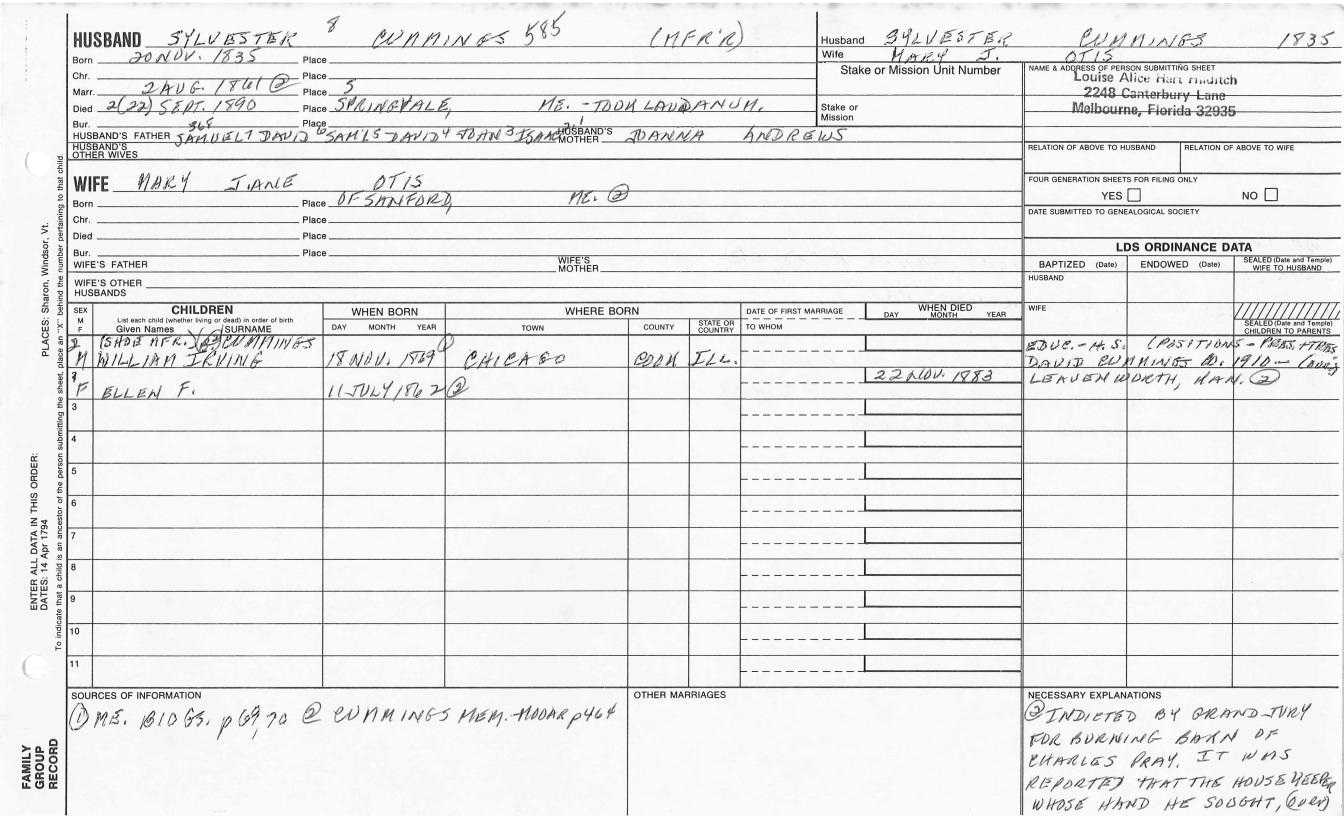 HUSBAND SYLVESTER 8 CUMMINGS 585 (MFR'R)
Born 20 NOV. 1835 Place
Chr. Place
Marr. 2 AUG. 1861 ② Place 5
Died 2(22) SEPT. 1890 Place SPRINGVALE, ME. - TOOK LAUDANUM.
Bur. Place
368
HUSBAND'S FATHER SAMUEL7 DAVID6 SAM'L5 DAVID4 JOHN3 ISAAC2,1 HUSBAND'S MOTHER JOANNA ANDREWS
HUSBAND'S OTHER WIVES
WIFE MARY JANE OTIS
Born Place OF SANFORD, ME. ②
Chr. Place
Died Place
Bur. Place
WIFE'S FATHER WIFE'S MOTHER
WIFE'S OTHER HUSBANDS
Husband SYLVESTER CUMMINGS 1835
Wife MARY J. OTIS
Stake or Mission Unit Number
Stake or Mission
NAME & ADDRESS OF PERSON SUBMITTING SHEET
Louise Alice Hart
2248 Canterbury Lane
Melbourne, Florida 32935
RELATION OF ABOVE TO HUSBAND RELATION OF ABOVE TO WIFE
FOUR GENERATION SHEETS FOR FILING ONLY
YES NO
DATE SUBMITTED TO GENEALOGICAL SOCIETY
LDS ORDINANCE DATA
BAPTIZED (Date) ENDOWED (Date) SEALED (Date and Temple) WIFE TO HUSBAND
HUSBAND
WIFE
SEALED (Date and Temple) CHILDREN TO PARENTS
SEX M F
CHILDREN
List each child (whether living or dead) in order of birth
Given Names SURNAME
WHEN BORN
DAY MONTH YEAR
WHERE BORN
TOWN COUNTY STATE OR COUNTRY
DATE OF FIRST MARRIAGE
TO WHOM
WHEN DIED
DAY MONTH YEAR
2 (SHOE MFR.) ② CUMMINGS
M WILLIAM IRVING 18 NOV. 1869 CHICAGO COOK ILL.
EDUC. - H.S. (POSITIONS - PRES. + TRES.
DAVID CUMMINGS CO. 1910 - (over)
F ELLEN F. 11 JULY 1862 ② 22 NOV. 1883
LEAVENWORTH, KAN. ②
3
4
5
6
7
8
9
10
11
SOURCES OF INFORMATION
① ME. BIOGS. p 69, 70 ② CUMMINGS MEM. - MOOAR p464
OTHER MARRIAGES
NECESSARY EXPLANATIONS
② INDICTED BY GRAND JURY
FOR BURNING BARN OF
CHARLES PRAY. IT WAS
REPORTED THAT THE HOUSEKEEPER
WHOSE HAND HE SOUGHT, (over)
PLACES: Sharon, Windsor, Vt.
ENTER ALL DATA IN THIS ORDER:
DATES: 14 Apr 1794
To indicate that a child is an ancestor of the person submitting the sheet, place an "X" behind the number pertaining to that child.
FAMILY GROUP RECORD